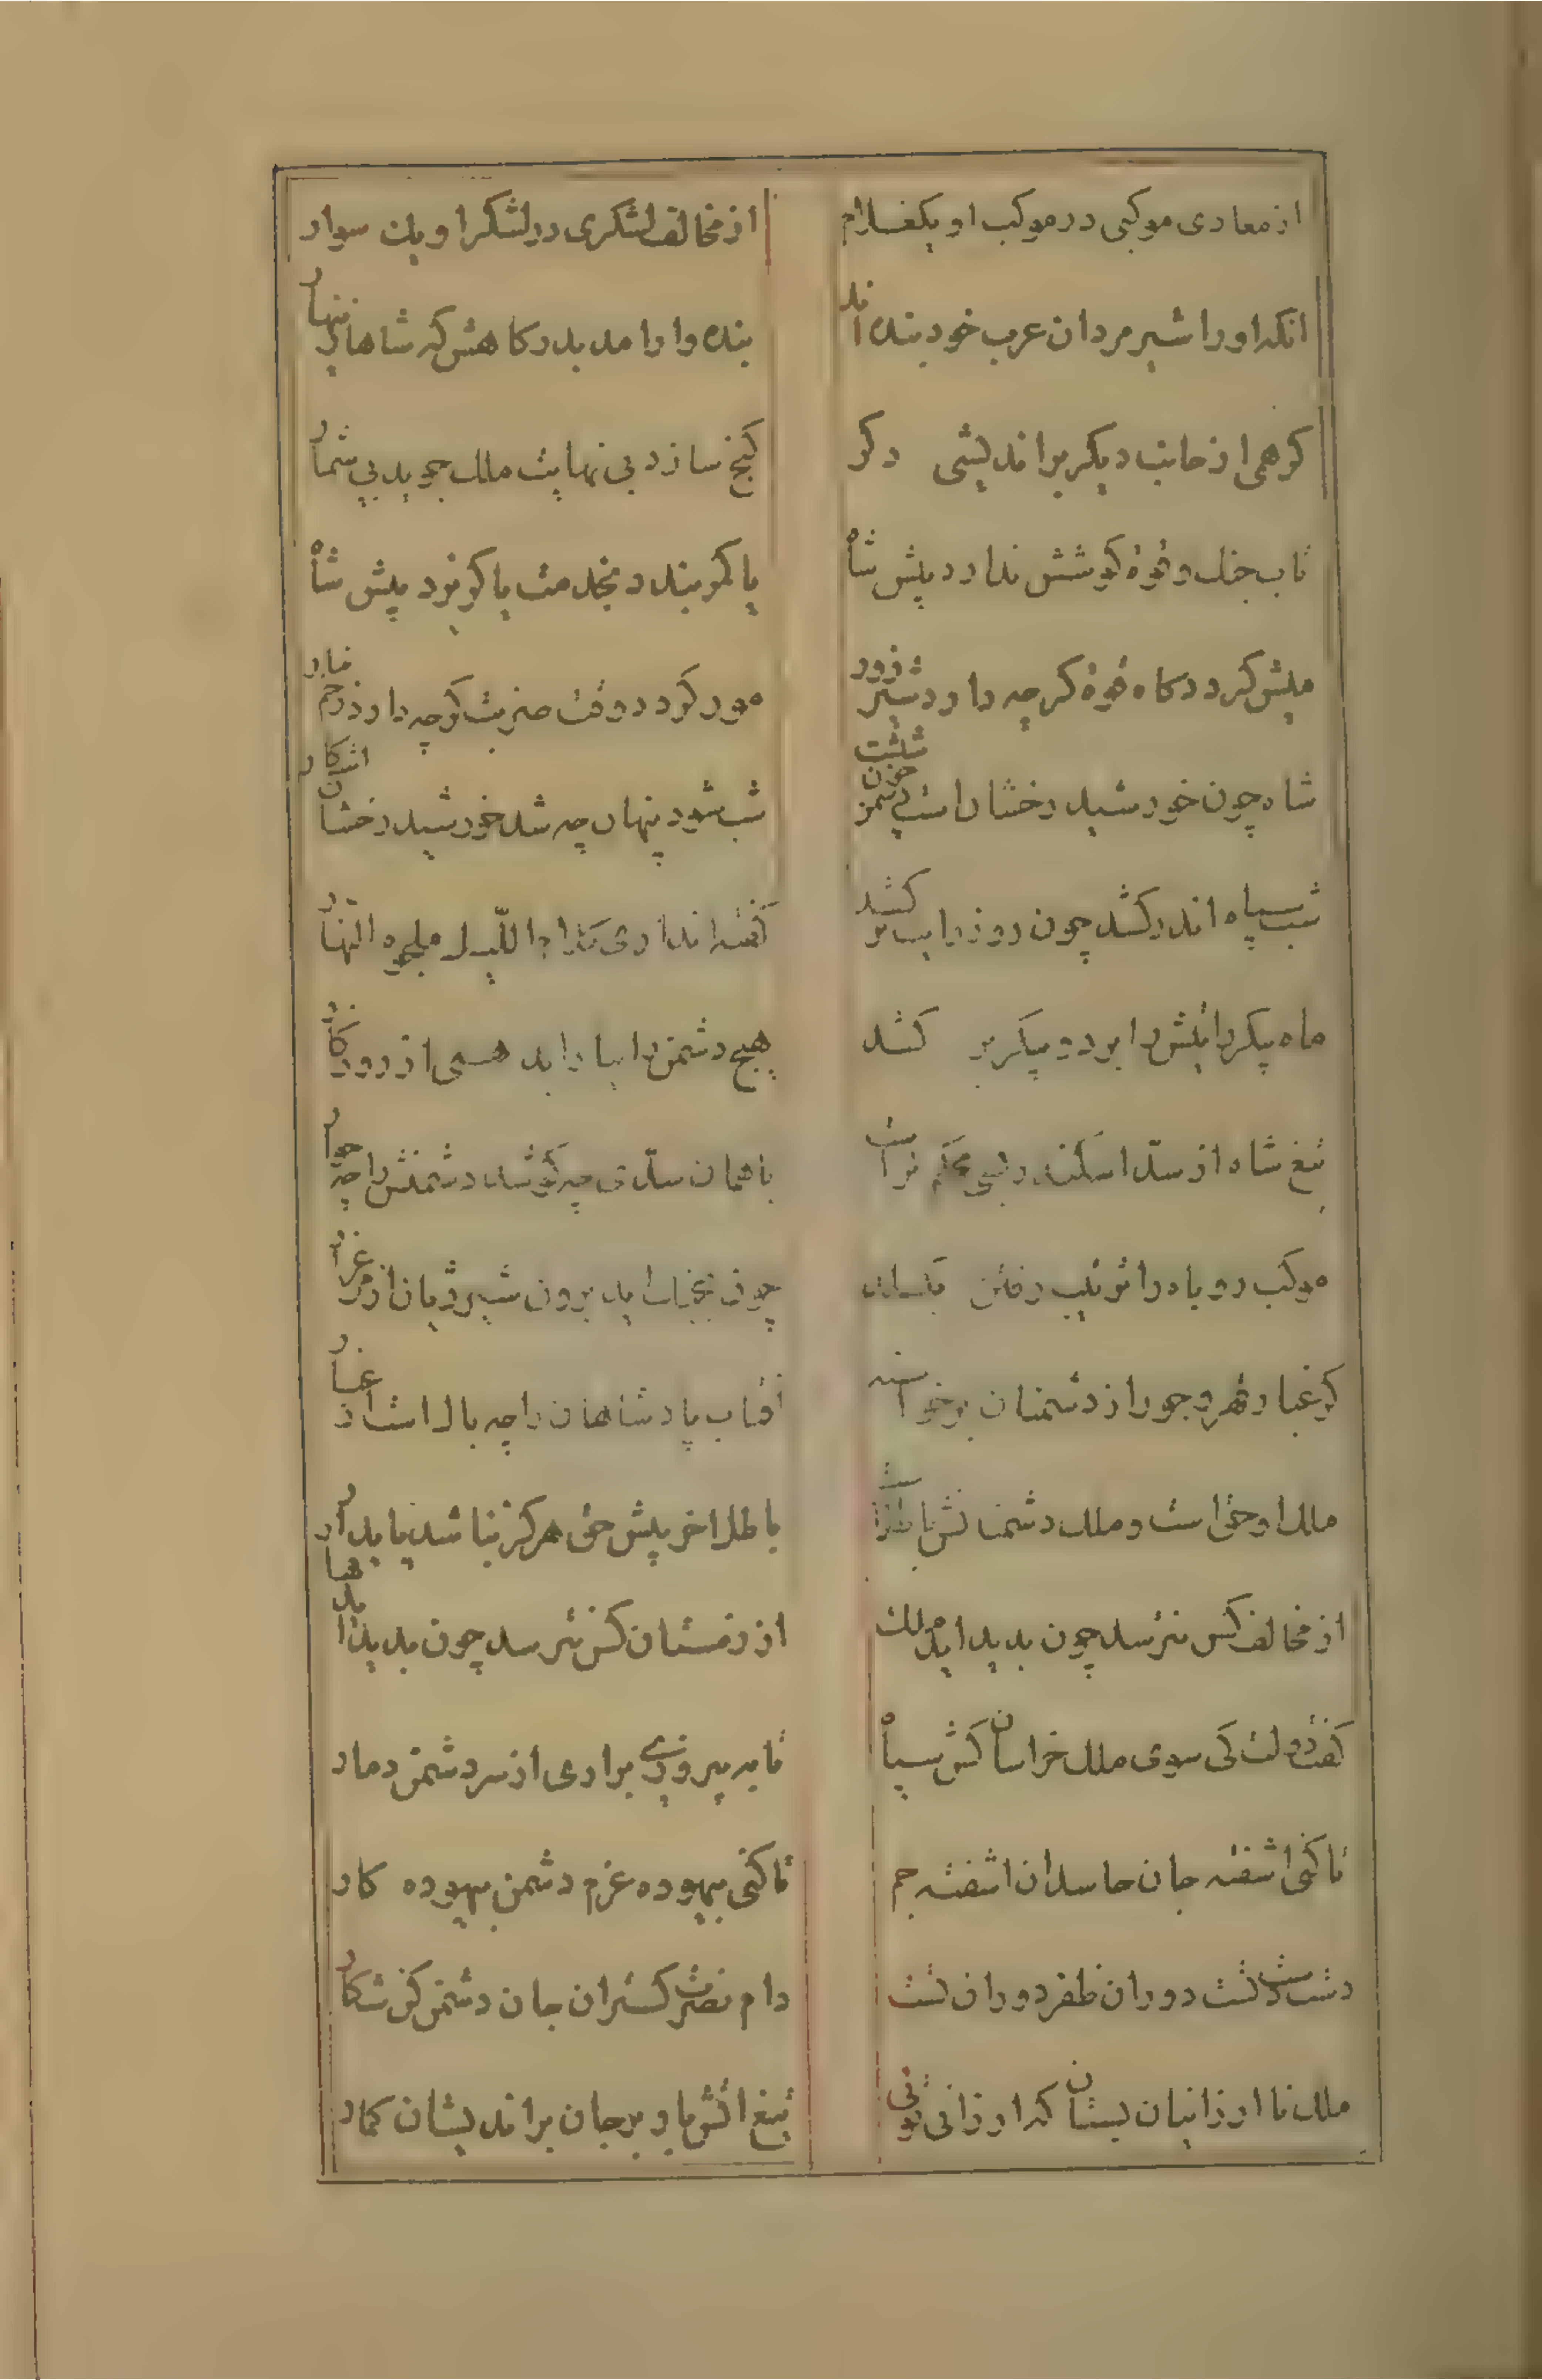 از معادی موکبی در موکب او یکغلام
از مخالف لشکری در لشکر او یک سوار
انکه او را شیر مردان عرب خود بنده اند
بنده وار امد بدرکاهش که شاها زینهار
کر همی از جانب دیکر بر اندیشی دکر
کنج سازد بی نهایت ملک جوید بی شمار
تاب جنک و قوة کوشش ندارد پیش شاه
یا کمر بندد بخدمت یا کریزد پیش شاه
میش کردد کاه قوة کر چه دارد شیر زور
مور کردد وقت ضربت کر چه دارد زخم مار
شاه چون خورشید رخشانست دشمن چون شبست
شب شود پنهان چه شد خورشید رخشان اشکار
شب سپاه اندر کشد چون روز رایت بر کشد
کفته اندازی مکرا واللیل ملجوه النهار
ماه پیکر رایتش را بر دو پیکر بر کشد
هیچ دشمن را یارابد همی از روزکار
تیغ شاه از سد اسکندر بسی محکم تر است
با همان سدی چه کوشد دشمنش را چه
موکب روباه را ترتیب رفتن
چون بیاید برون شیر ژیان از مرغزار
کر غبار قهر و جور از دشمنان برخواسته
افتاب پادشاهان را چه باک است از غبار
ملک او حق است و ملک دشمنانش باطلست
باطل اخر پیش حق هرکز نباشد پایدار
از مخالف کس نترسد چون بدید اید ملک
از زمستان کس نترسد چون بدید اید بهار
کفت دولت کی سوی ملک خراسان کش سپاه
تا به پیروزی براری از سر دشمن دمار
تا کنی اشفته جان حاسدان اشفته جم
تا کنی بیهوده عزم دشمن بیهوده کار
دشت دشت دوران ظفر دوران تست
دام نصرت کستران جان دشمن کن شکار
ملک نا ارزانیان بستان که ارزانی توئی
تیغ اتش بار بر جان بر اندیشان کمار